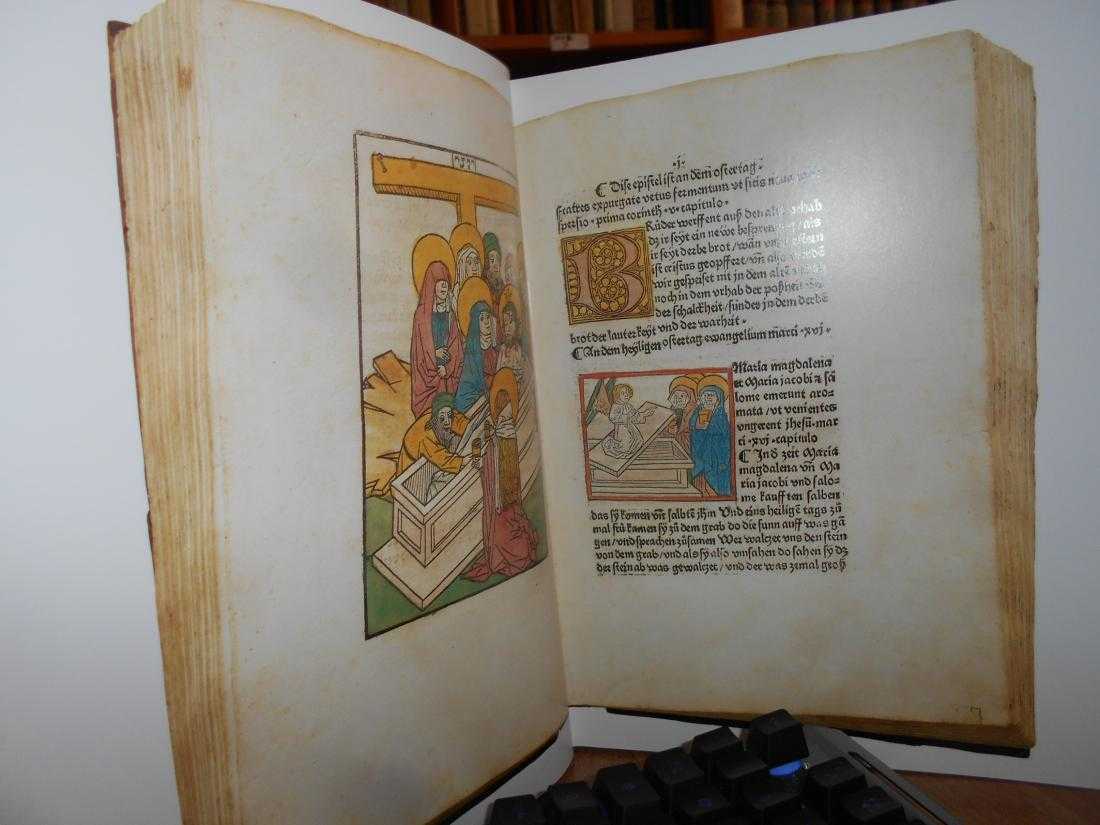 ·j·
¶ Dise epistel ist an dem̄ ostertag:
fratres expurgate vetus fermentum vt sitis noua
spersio · prima corinth · v · capitulo ·
BRüder werffent auß den alten vrhab
dz ir seyt ein newe besprengung / als
ir seyt derbe brot / wān vnser ostern
ist cristus geopffert / vn̄ also werdē
wir gespeiset nit in dem altē vrhab
noch in dem vrhab der poßheit
der schalckheit / sunder in dem derbē
brot der lauterkeyt vnd der warheit ·
¶ An dem heyligen ostertag ewangelium marci · xvj ·
Maria magdalena
et Maria jacobi & sa
lome emerunt aro⸗
mata / vt venientes
vngerent jhesū · mar⸗
ci · xvj · capitulo
¶ In d̄ zeit Maria
magdalena vn̄ Ma
ria jacobi vnd salo⸗
me kaufften salben
das sÿ komen vn̄ salbtē jhm̄ Vnd eins heiligē tags zū
mal frū kamen sÿ zū dem grab do die sunn auff was gā
gen / vnd sprachen zūsamen Wer walczet vns den stein
von dem grab / vnd als sÿ also vmsahen do sahen sÿ dz
der stein ab was gewalczet / vnd der was zemal groß